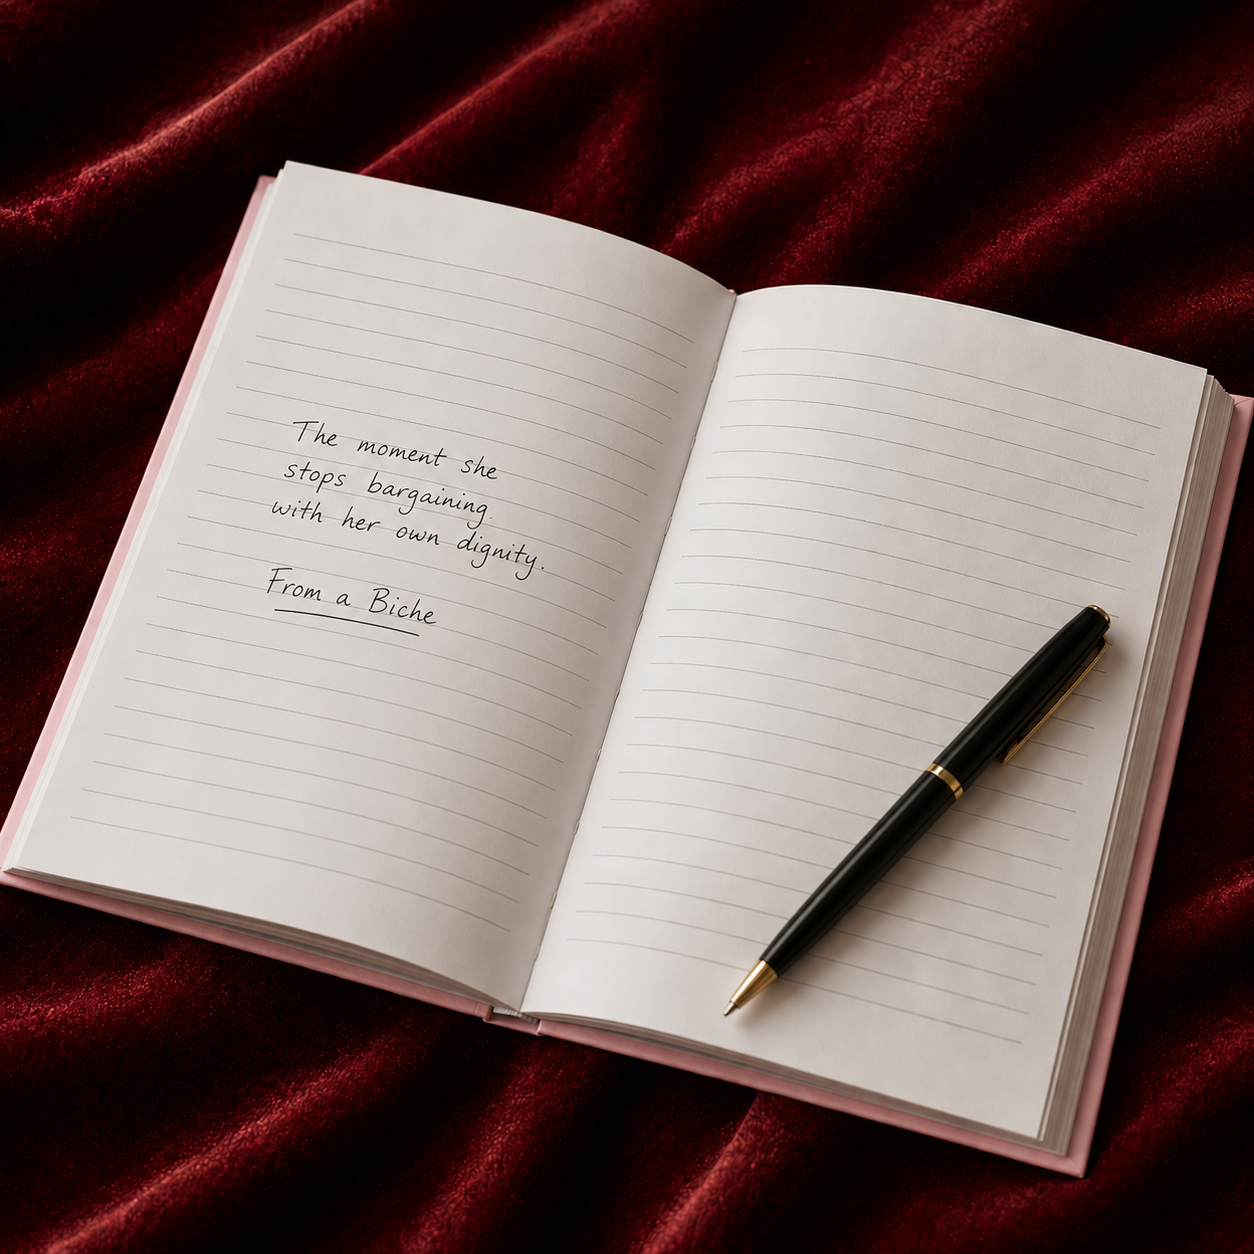 The moment she
stops bargaining.
with her own dignity.
From a Biche